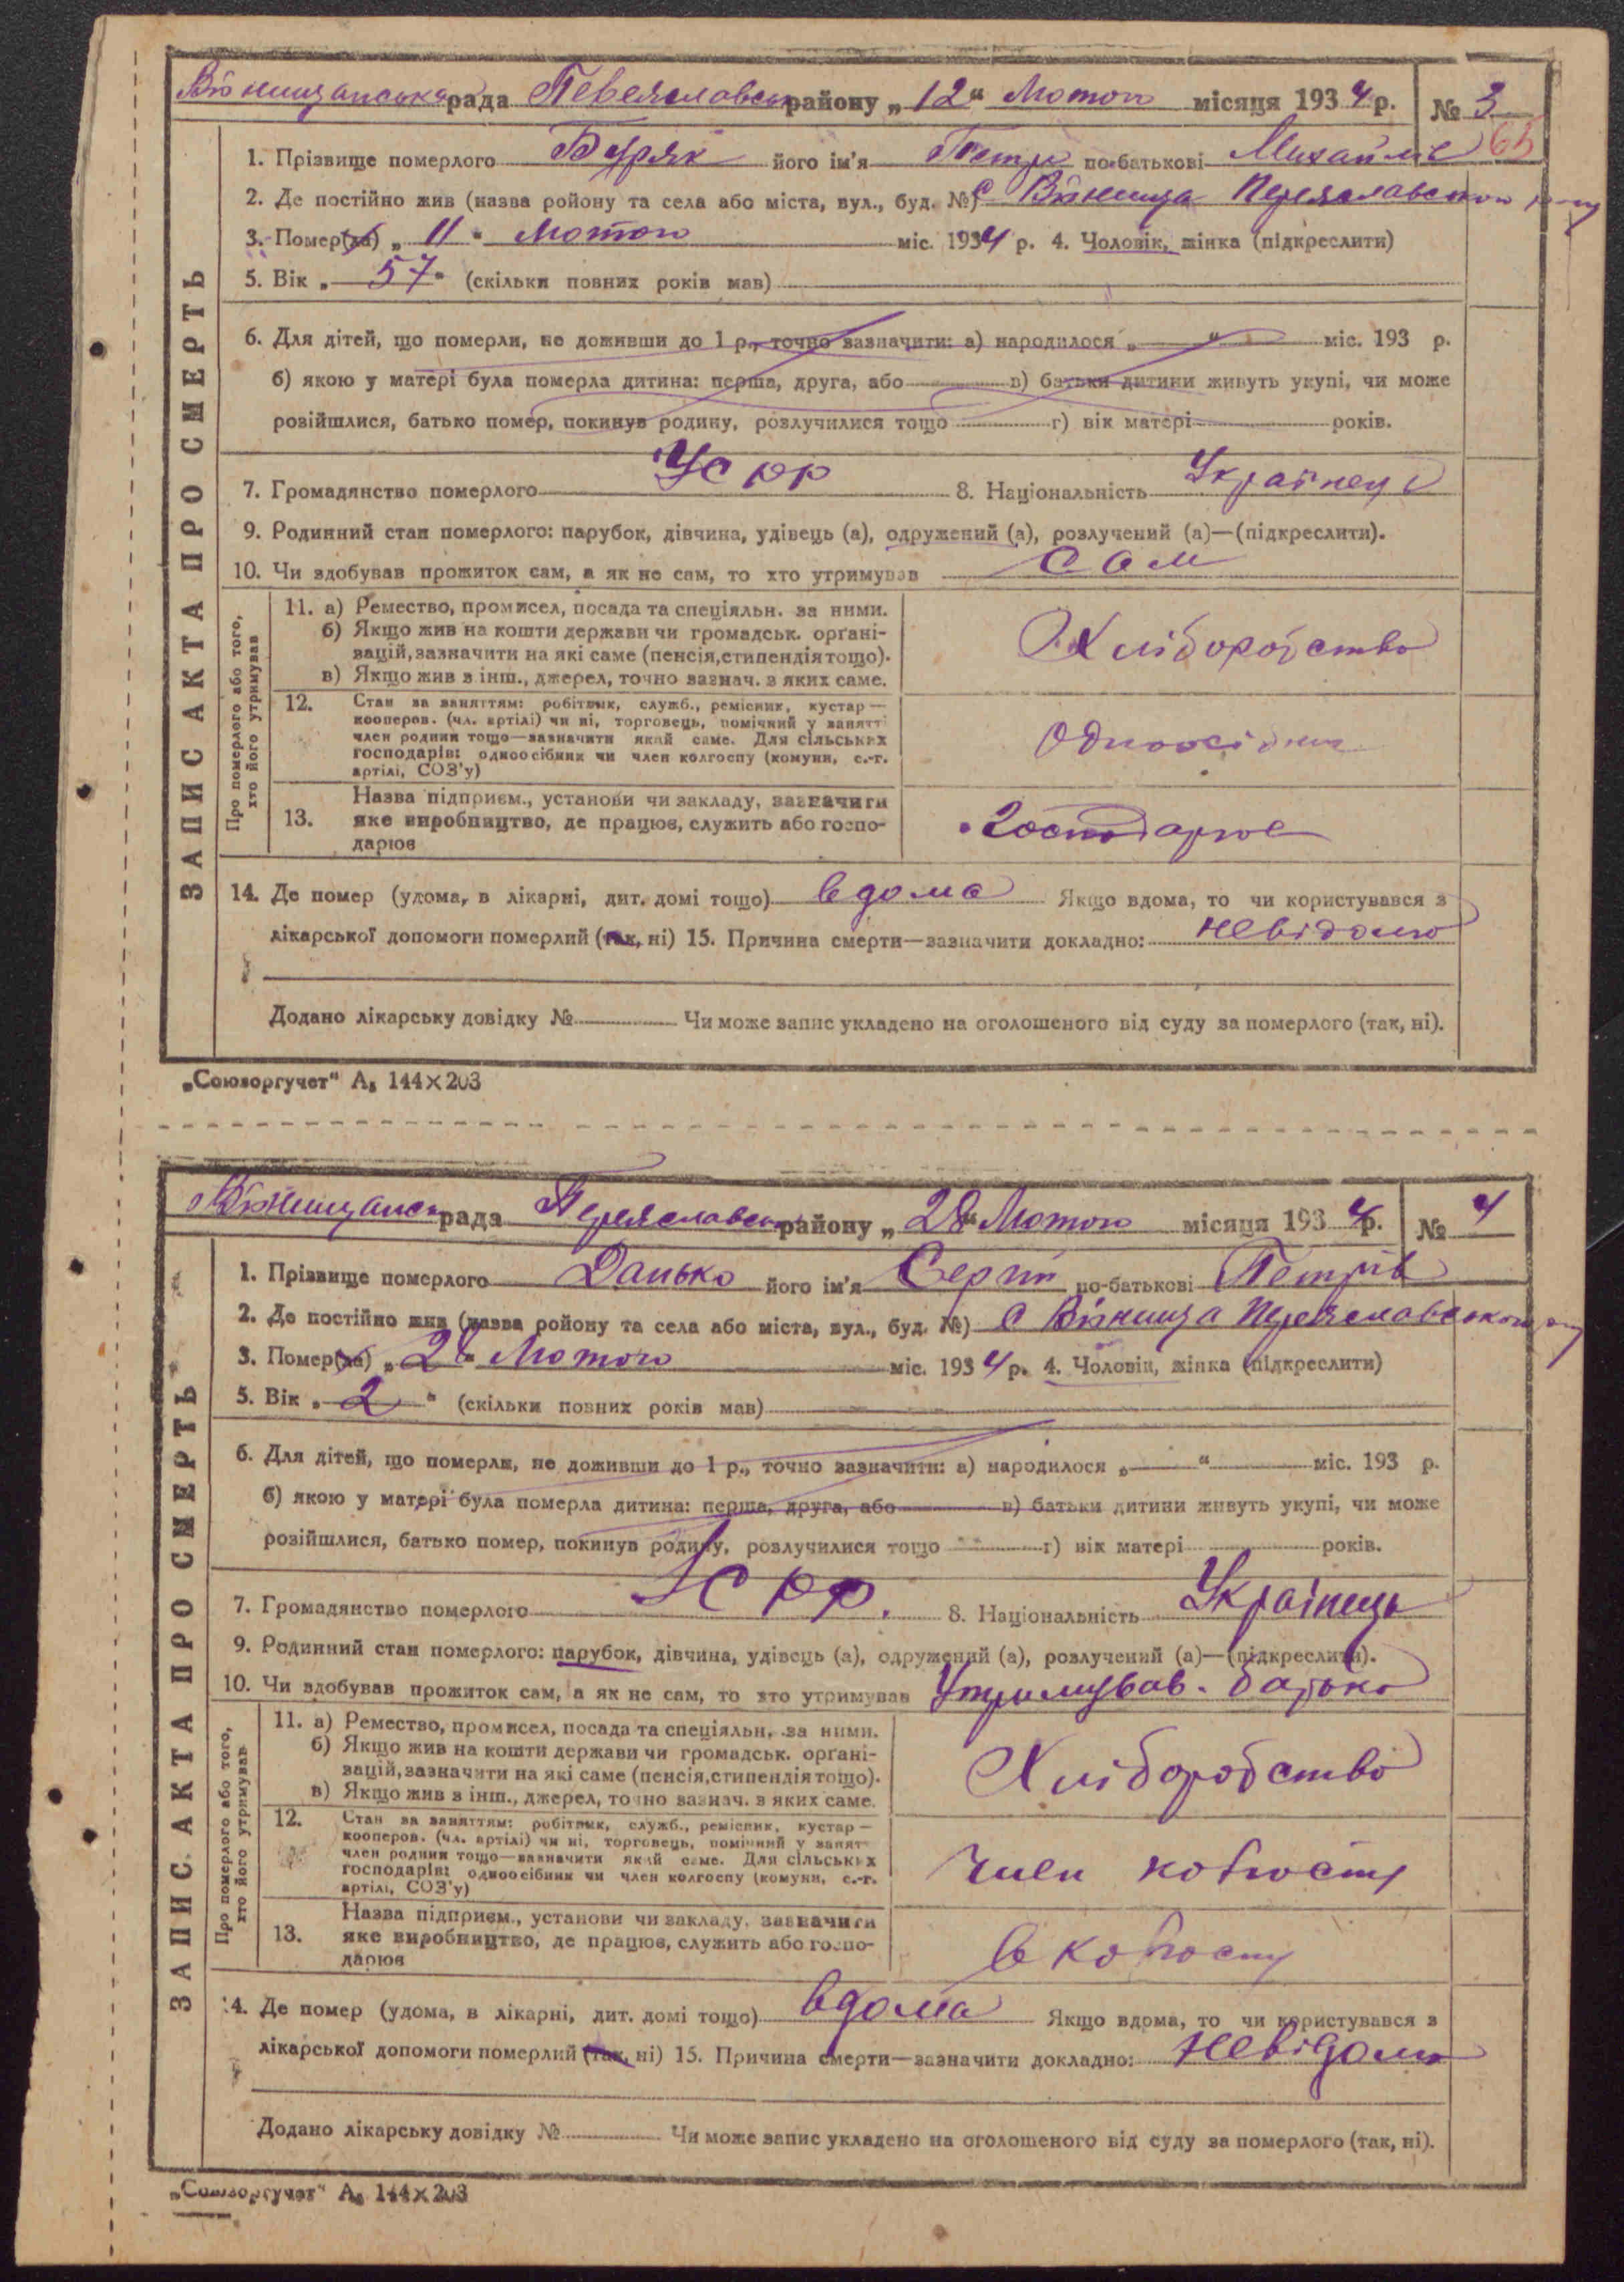 Віницанська рада Переяславськ району „12“ Лютого місяця 1934 р. № 3
65
1. Прізвище померлого Буряк його ім'я Петро по-батькові Михайлів
2. Де постійно жив (назва ройону та села або міста, вул., буд. №) с Віниця Переяславського р-ну
3. Помер(ла) „11“ Лютого міс. 1934 р. 4. Чоловік, жінка (підкреслити)
5. Вік „57“ (скільки повних років мав)
6. Для дітей, що померли, не доживши до 1 р., точно зазначити: а) народилося „ “ міс. 193 р.
б) якою у матері була померла дитина: перша, друга, або в) батьки дитини живуть укупі, чи може
розійшлися, батько помер, покинув родину, розлучилися тощо г) вік матері років.
7. Громадянство померлого УСРР 8. Національність Українець
9. Родинний стан померлого: парубок, дівчина, удівець (а), одружений (а), розлучений (а)—(підкреслити).
10. Чи здобував прожиток сам, а як не сам, то хто утримував сам
ЗАПИС АКТА ПРО СМЕРТЬ
Про померлого або того, хто його утримував
11. а) Ремество, промисел, посада та спеціяльн. за ними.
б) Якщо жив на кошти держави чи громадськ. органі-
зацій, зазначити на які саме (пенсія, стипендія тощо).
в) Якщо жив з інш., джерел, точно зазнач. з яких саме.
Хліборобство
12. Стан за заняттям: робітник, служб., ремісник, кустар—
кооперов. (чл. артілі) чи ні, торговець, помічний у занятті
член родини тощо—зазначити який саме. Для сільських
господарів: одноосібник чи член колгоспу (комуни, с.-г.
артілі, СОЗ'у)
Одноосібник
13. Назва підприєм., установи чи закладу, зазначити
яке виробництво, де працює, служить або госпо-
дарює
Господарює
14. Де помер (удома, в лікарні, дит. домі тощо) вдома Якщо вдома, то чи користувався з
лікарської допомоги померлий (так, ні) 15. Причина смерти—зазначити докладно: невідомо
Додано лікарську довідку № Чи може запис укладено на оголошеного від суду за померлого (так, ні).
„Союзоргучет“ А₅ 144×203
Віницанськ рада Переяславськ району „28“ Лютого місяця 1934 р. № 4
1. Прізвище померлого Данько його ім'я Сергій по-батькові Петрів
2. Де постійно жив (назва ройону та села або міста, вул., буд. №) с Віниця Переяславського р-ну
3. Помер(ла) „28“ Лютого міс. 1934 р. 4. Чоловік, жінка (підкреслити)
5. Вік „2“ (скільки повних років мав)
6. Для дітей, що померли, не доживши до 1 р., точно зазначити: а) народилося „ “ міс. 193 р.
б) якою у матері була померла дитина: перша, друга, або в) батьки дитини живуть укупі, чи може
розійшлися, батько помер, покинув родину, розлучилися тощо г) вік матері років.
7. Громадянство померлого УСРР. 8. Національність Українець
9. Родинний стан померлого: парубок, дівчина, удівець (а), одружений (а), розлучений (а)—(підкреслити).
10. Чи здобував прожиток сам, а як не сам, то хто утримував Утримував батько
ЗАПИС АКТА ПРО СМЕРТЬ
Про померлого або того, хто його утримував
11. а) Ремество, промисел, посада та спеціяльн. за ними.
б) Якщо жив на кошти держави чи громадськ. органі-
зацій, зазначити на які саме (пенсія, стипендія тощо).
в) Якщо жив з інш., джерел, точно зазнач. з яких саме.
Хліборобство
12. Стан за заняттям: робітник, служб., ремісник, кустар—
кооперов. (чл. артілі) чи ні, торговець, помічний у занят
член родини тощо—зазначити який саме. Для сільських
господарів: одноосібник чи член колгоспу (комуни, с.-г.
артілі, СОЗ'у)
Член колгоспу
13. Назва підприєм., установи чи закладу, зазначити
яке виробництво, де працює, служить або госпо-
дарює
в колгоспу
14. Де помер (удома, в лікарні, дит. домі тощо) вдома Якщо вдома, то чи користувався з
лікарської допомоги померлий (так, ні) 15. Причина смерти—зазначити докладно: Невідомо
Додано лікарську довідку № Чи може запис укладено на оголошеного від суду за померлого (так, ні).
„Союзоргучет“ А₅ 144×203